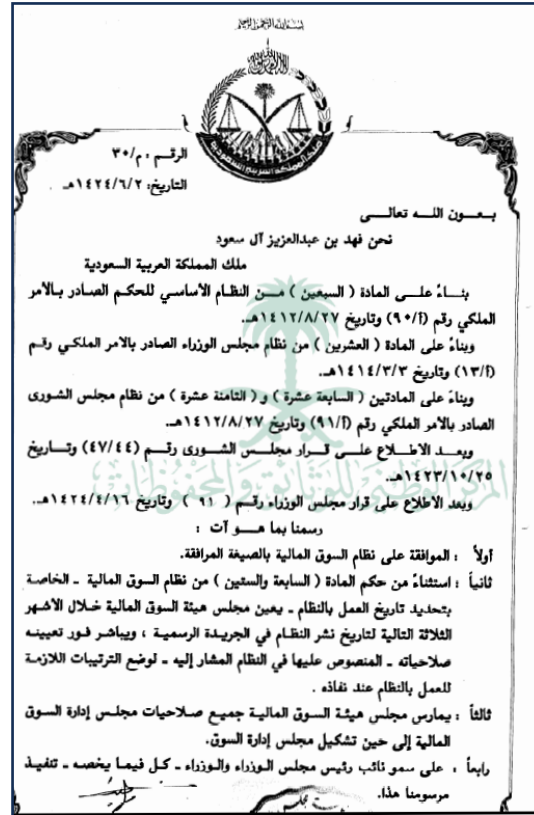 بسم الله الرحمن الرحيم
المملكة العربية السعودية
الرقم : م/٣٠
التاريخ: ١٤٢٤/٦/٢هـ
بـعـــون اللـــه تعالـــى
نحن فهد بن عبدالعزيز آل سعود
ملك المملكة العربية السعودية
بنـــاءً علـــى المادة ( السبعين ) مـــن النظام الأساسي للحكم الصادر بـالأمر
الملكي رقم (أ/٩٠) وتاريخ ١٤١٢/٨/٢٧هـ.
وبناءً على المادة ( العشرين ) من نظام مجلس الوزراء الصادر بالامر الملكـي رقـم
(أ/١٣) وتاريخ ١٤١٤/٣/٣هـ.
وبناءً على المادتين ( السابعة عشرة ) و ( الثامنة عشرة ) من نظام مجلس الشورى
الصادر بالأمر الملكي رقم (أ/٩١) وتاريخ ١٤١٢/٨/٢٧هـ.
وبعـد الاطـــلاع علـــى قـــرار مجلـــس الشـــورى رقـــم (٤٧/٤٤) وتـــاريخ
١٤٢٣/١٠/٢٥هـ.
المركز الوطني للوثائق والمحفوظات
وبعد الاطلاع على قرار مجلس الوزراء رقـم ( ٩١ ) وتاريخ ١٤٢٤/٤/١٦هـ.
رسمنا بما هـــو آت :
أولاً : الموافقة على نظام السوق المالية بالصيغة المرافقة.
ثانياً : استثناءً من حكم المادة ( السابعة والستين ) من نظام السوق المالية ـ الخاصـة
بتحديد تاريخ العمل بالنظام ـ يعين مجلس هيئة السوق المالية خـلال الأشـهر
الثلاثة التالية لتاريخ نشر النظـام في الجريـدة الرسميـة ، ويباشـر فـور تعيينـه
صلاحياته ـ المنصوص عليها في النظام المشار إليه ـ لوضع الترتيبات اللازمـة
للعمل بالنظام عند نفاذه .
ثالثاً : يمارس مجلس هيئـة السـوق الماليـة جميـع صـلاحيات مجلـس إدارة السـوق
المالية إلى حين تشكيل مجلس إدارة السوق.
رابعاً : على سمو نائب رئيس مجلس الـوزراء والـوزراء ـ كـل فيمـا يخصـه ـ تنفيـذ
مرسومنا هذا.